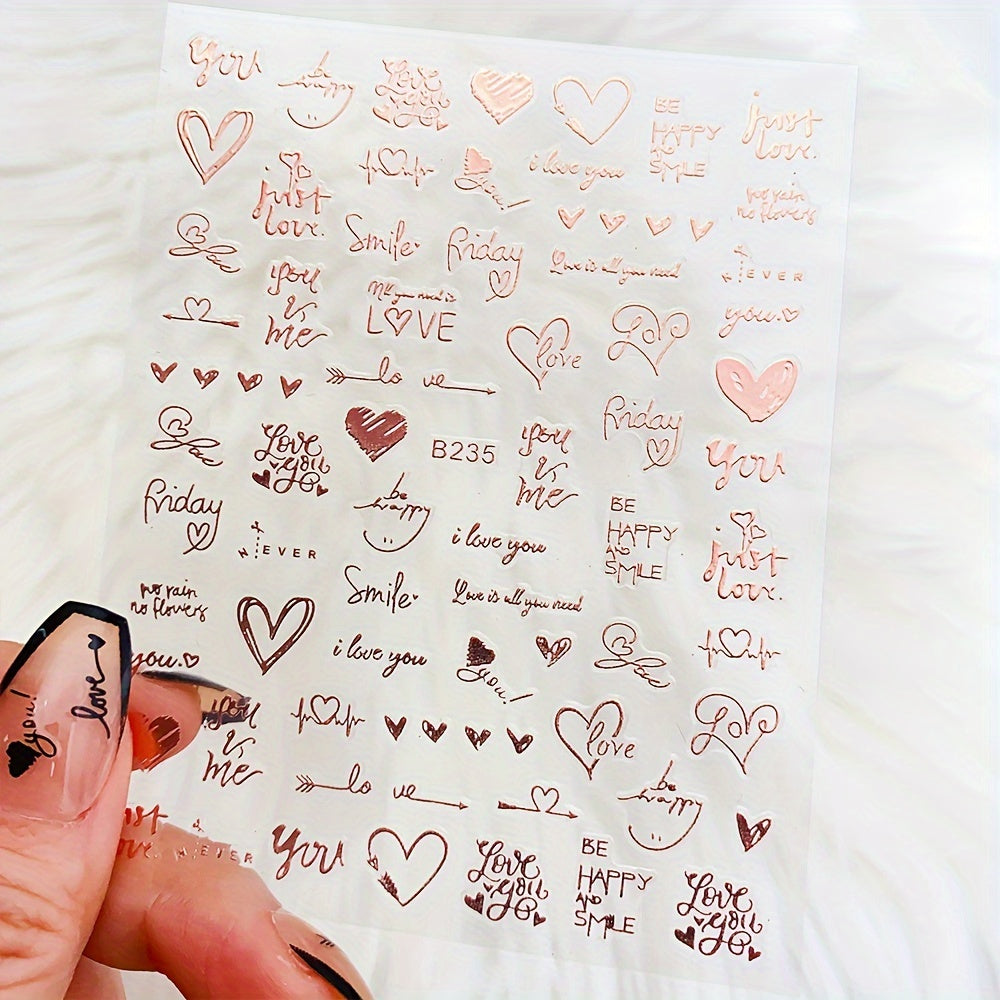 you
be
happy
Love
you
BE
HAPPY
AND
SMILE
just
love.
i love you
you!
no rain
no flowers
just
love.
Smile
friday
Love is all you need
NEVER
you
&
me
All you need is
LOVE
you.
love
love
lo ve
friday
Love
you
B235
you
&
me
you
friday
be
happy
BE
HAPPY
AND
SMILE
i love you
just
love.
NEVER
no rain
no flowers
Smile
Love is all you need
you.
i love you
you!
you
&
me
love
love
you!
love
lo ve
be
happy
just
love.
NEVER
you
Love
you
BE
HAPPY
AND
SMILE
Love
you